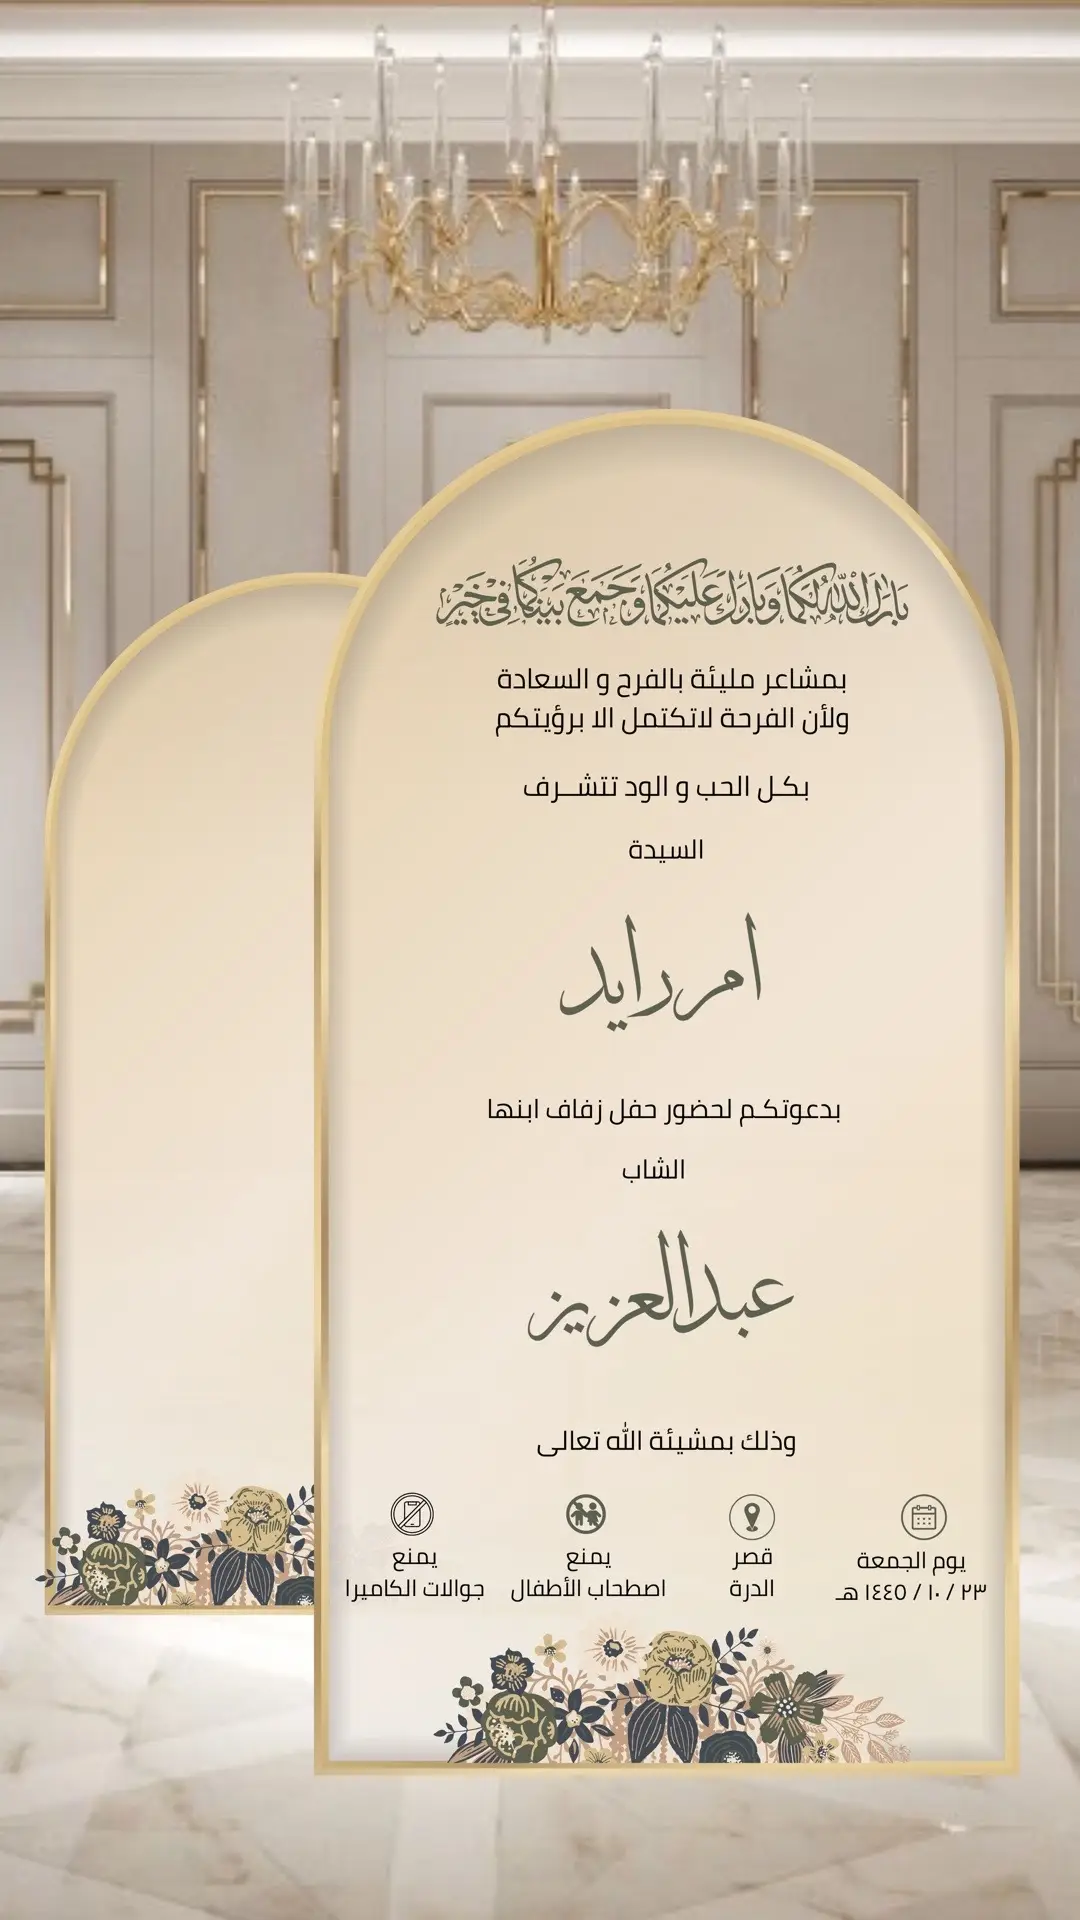 بارك الله لكما وبارك عليكما وجمع بينكما في خير
بمشاعر مليئة بالفرح و السعادة
ولأن الفرحة لاتكتمل الا برؤيتكم
بكل الحب و الود تتشـــرف
السيدة
ام رايد
بدعوتكـم لحضور حفل زفاف ابنها
الشاب
عبدالعزيز
وذلك بمشيئة الله تعالى
يوم الجمعة
٢٣ / ١٠ / ١٤٤٥ هـ
قصر
الدرة
يمنع
اصطحاب الأطفال
يمنع
جوالات الكاميرا